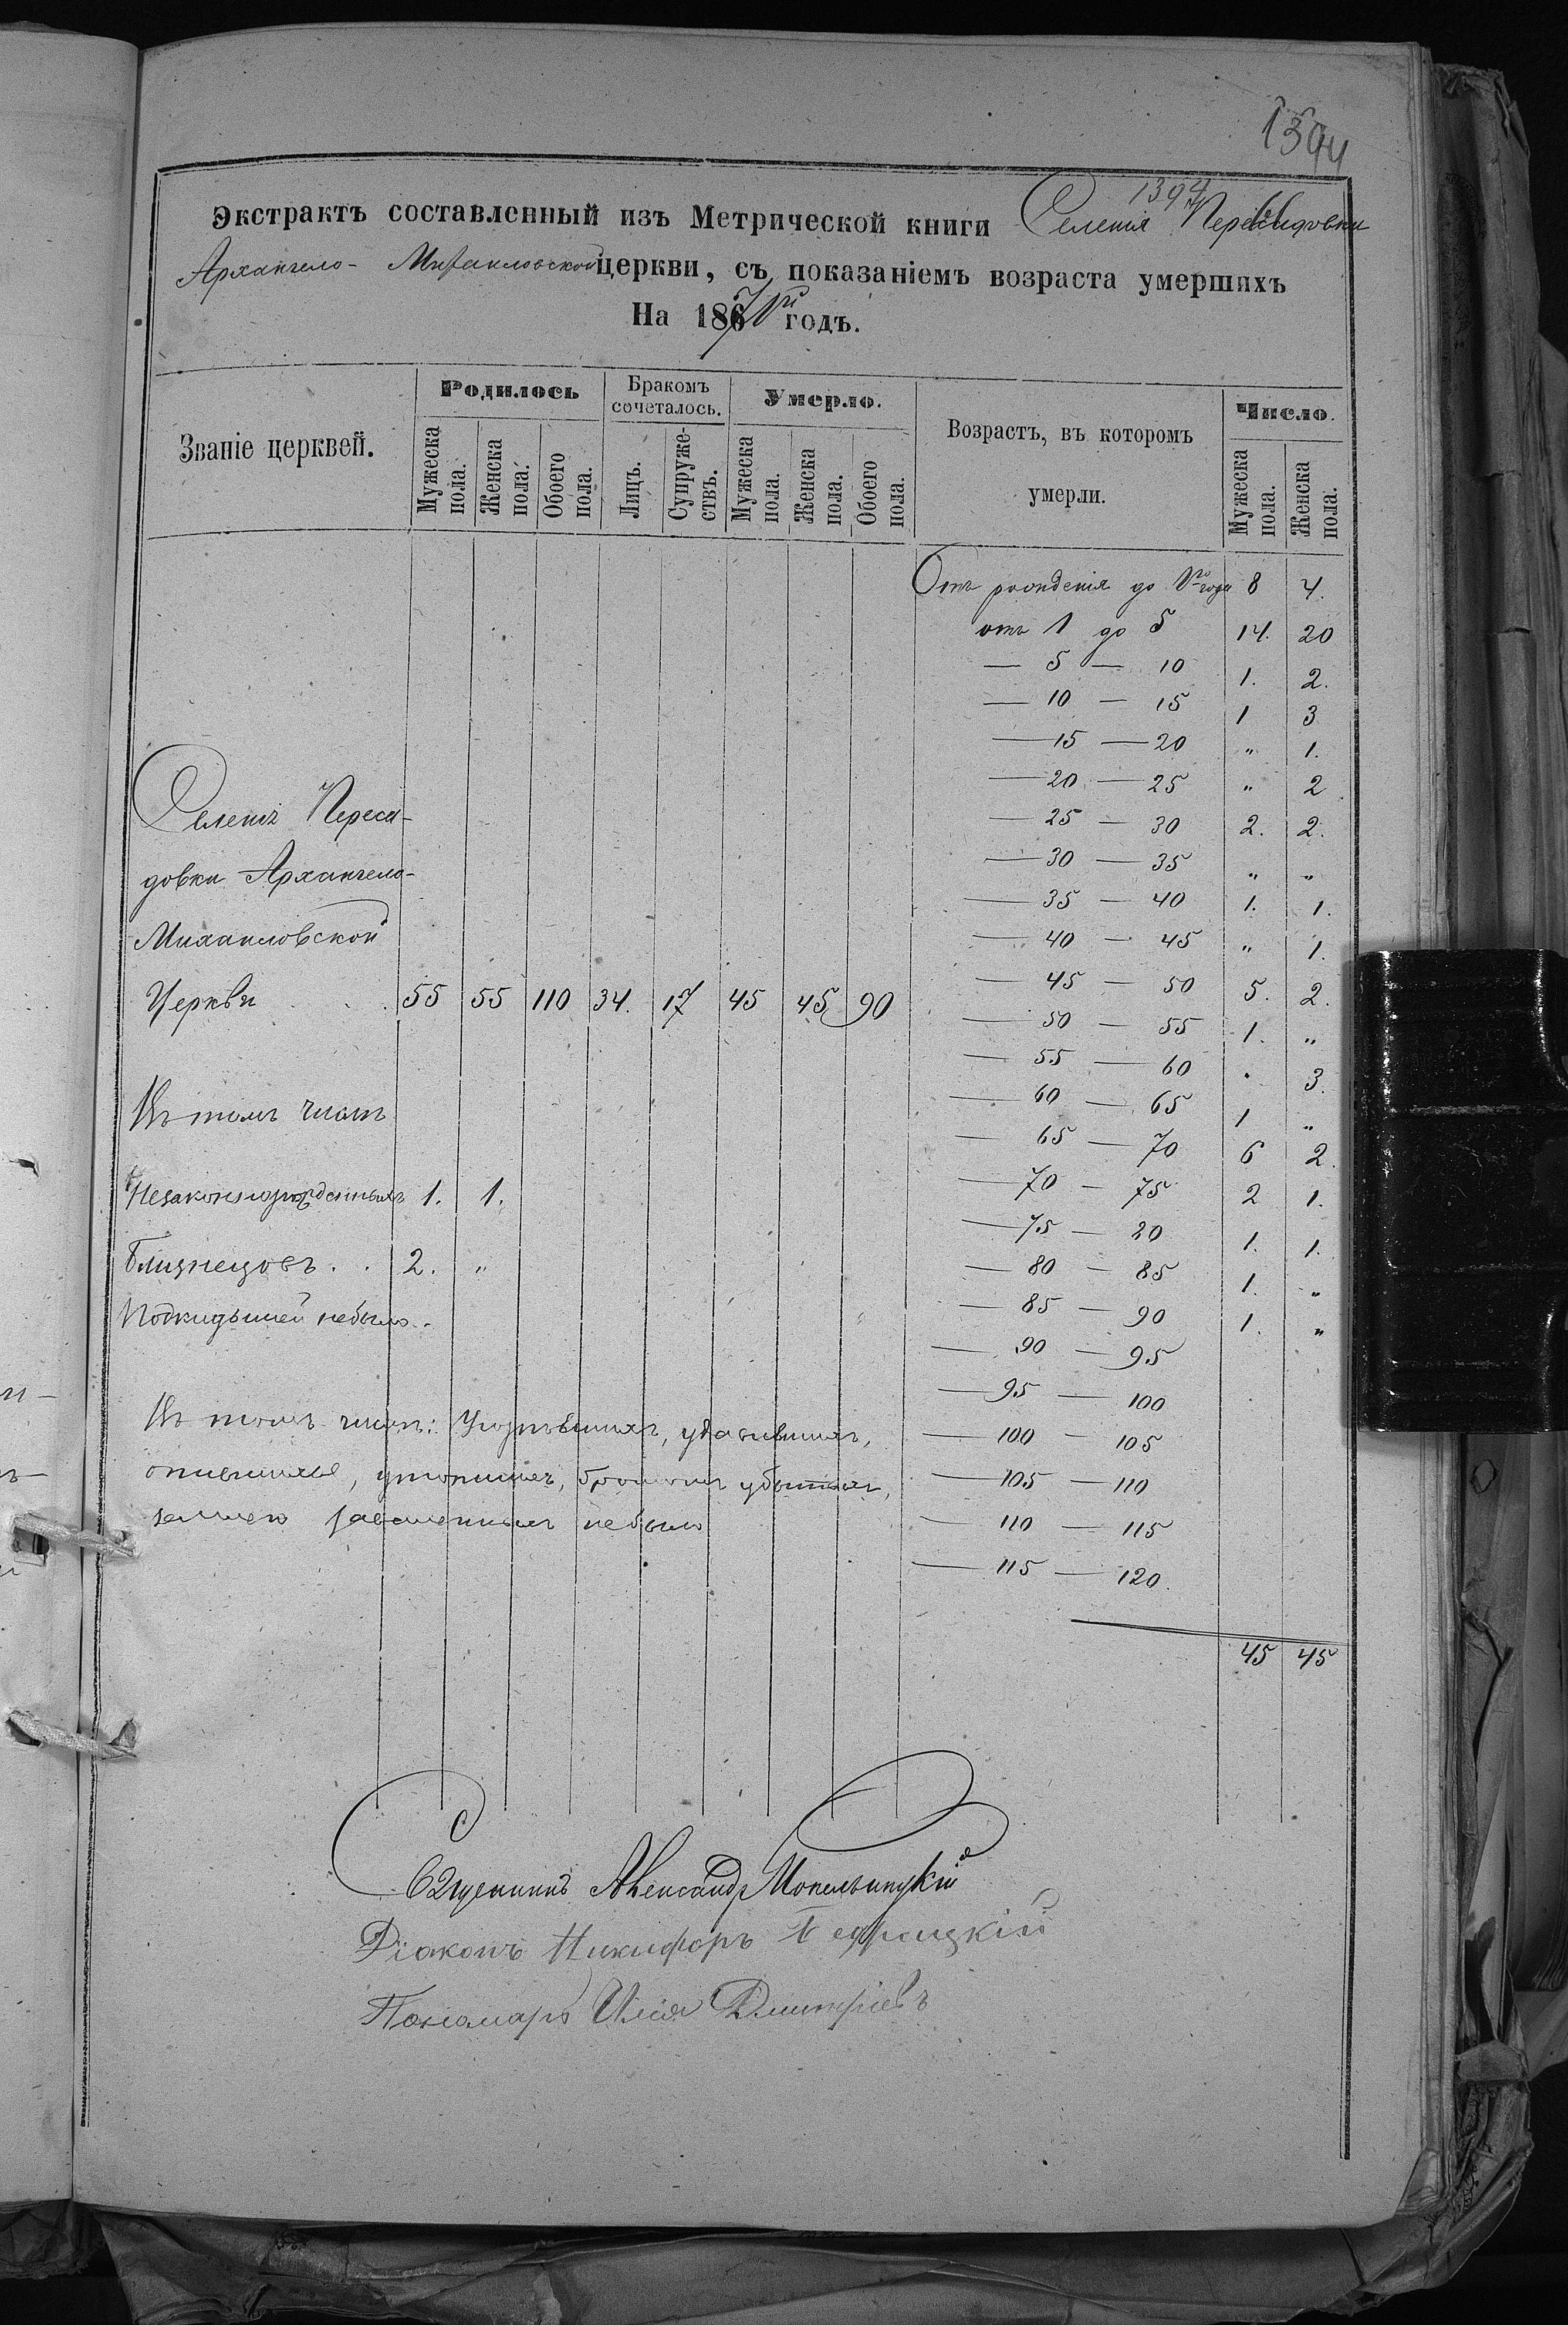 1394
1394
Экстрактъ составленный изъ Метрической книги Селенія Пересадовки
Архангело-Михаиловской церкви, съ показаніемъ возраста умершихъ
На 1871й годъ.
Званіе церквей.
Родилось
Мужеска пола.
Женска пола.
Обоего пола.
Бракомъ сочеталось.
Лицъ.
Супружествъ.
Умерло.
Мужеска пола.
Женска пола.
Обоего пола.
Возрастъ, въ которомъ умерли.
Число.
Мужеска пола.
Женска пола.
Отъ рожденія до 1го года 8 4.
отъ 1 до 5 14. 20
— 5 — 10 1. 2.
— 10 — 15 1 3
— 15 — 20 „ 1.
— 20 — 25 „ 2
— 25 — 30 2. 2.
— 30 — 35 „ „
— 35 — 40 1. 1.
— 40 — 45 „ 1.
— 45 — 50 5. 2.
— 50 — 55 1. „
— 55 — 60 „ 3.
— 60 — 65 1 „
— 65 — 70 6 2.
— 70 — 75 2 1.
— 75 — 80 1. 1.
— 80 — 85 1. „
— 85 — 90 1. „
— 90 — 95
— 95 — 100
— 100 — 105
— 105 — 110
— 110 — 115
— 115 — 120.
45 45
Селенія Переса-
довки Архангело-
Михаиловской
Церкви 55 55 110 34. 17 45 45 90
Въ томъ числѣ
Незаконнорожденныхъ 1. 1.
Близнецовъ . . 2. „
Подкидышей небыло.
Въ томъ числѣ: Угорѣвшихъ, удавившихъ,
опившихся, утопшихъ, громомъ убитыхъ,
землею заваленныхъ небыло
Священникъ Александръ
Діаконъ Никифоръ
Пономарь Илія Дмитріевъ